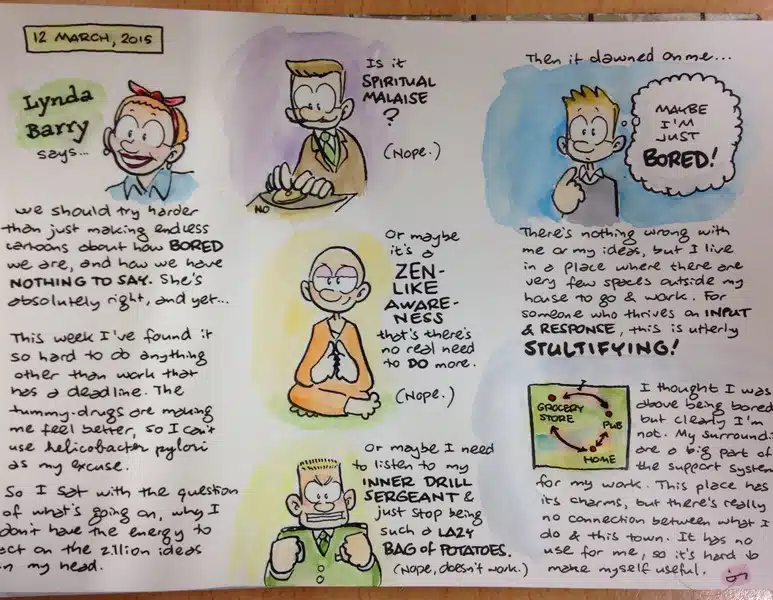 12 MARCH, 2015
Lynda
Barry
says...
we should try harder
than just making endless
cartoons about how BORED
we are, and how we have
NOTHING TO SAY. She's
absolutely right, and yet...
This week I've found it
so hard to do anything
other than work that
has a deadline. The
tummy-drugs are making
me feel better, so I can't
use helicobacter pylori
as my excuse.
So I sat with the question
of what's going on, why I
don't have the energy to
act on the zillion ideas
in my head.
Is it
SPIRITUAL
MALAISE
?
(Nope.)
NO
Or maybe
it's a
ZEN-
LIKE
AWARE-
NESS
that's there's
no real need
to DO more.
(Nope.)
Or maybe I need
to listen to my
INNER DRILL
SERGEANT &
just stop being
such a LAZY
BAG OF POTATOES.
(Nope, doesn't work.)
Then it dawned on me...
MAYBE
I'M
JUST
BORED!
There's nothing wrong with
me or my ideas, but I live
in a place where there are
very few spaces outside my
house to go & work. For
someone who thrives on INPUT
& RESPONSE, this is utterly
STULTIFYING!
GROCERY
STORE
PUB
HOME
I thought I was
above being bored
but clearly I'm
not. My surround-
are a big part of
the support system
for my work. This place has
its charms, but there's really
no connection between what I
do & this town. It has no
use for me, so it's hard to
make myself useful.